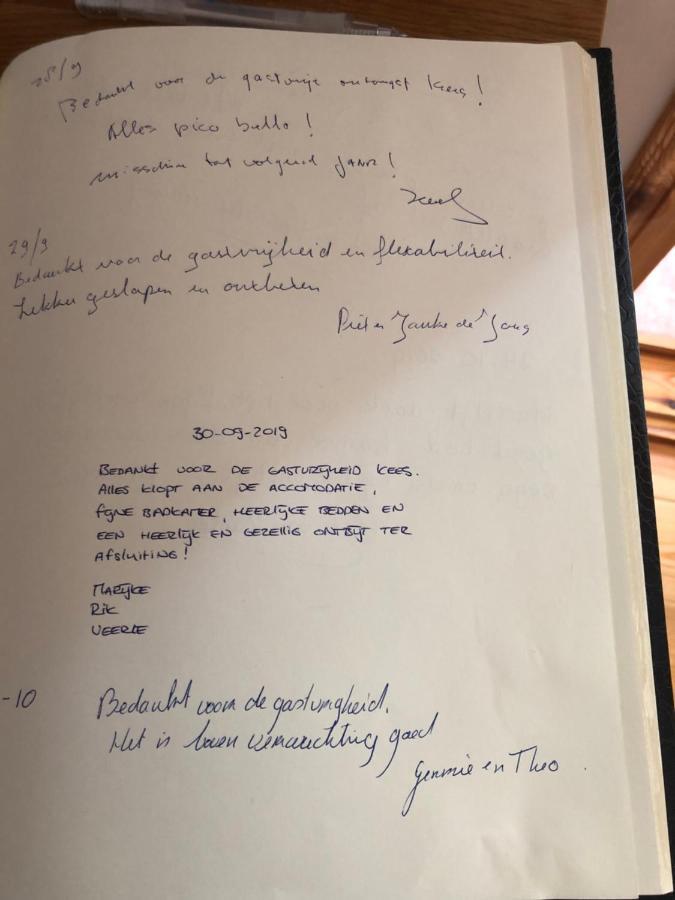 28/9
Bedankt voor de gastvrije ontvangst Kees!
Alles pico bello!
misschien tot volgend jaar!
29/9
Bedankt voor de gastvrijheid en flexabiliteit.
Lekker geslapen en ontbeten
Piet en Janke de Jong
30-09-2019
BEDANKT VOOR DE GASTVRIJHEID KEES.
ALLES KLOPT AAN DE ACCOMODATIE,
FIJNE BADKATER, HEERLIJKE BEDDEN EN
EEN HEERLIJK EN GEZELLIG ONTBIJT TER
AFSLUITING!
MARIJKE
RIK
VEERLE
-10
Bedankt voor de gastvrijheid.
Het is boven verwachting goed
en Theo